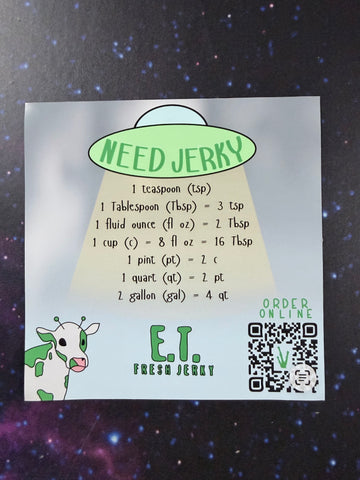 NEED JERKY
1 teaspoon (tsp)
1 Tablespoon (Tbsp) = 3 tsp
1 fluid ounce (fl oz) = 2 Tbsp
1 cup (c) = 8 fl oz = 16 Tbsp
1 pint (pt) = 2 c
1 quart (qt) = 2 pt
2 gallon (gal) = 4 qt
ORDER
ONLINE
E.T.
FRESH JERKY